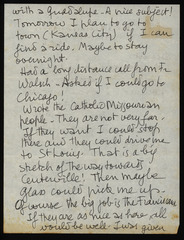 with a grad slip - A nice subject!
Tomorrow I plan to go to
town (Kansas City) if I can
find a ride. Maybe to stay
overnight.
Had a long distance call from Fr
Walsh - Asked if I could go to
Chicago!
Wrote the Catholic Missourian
people. They are not very far.
If they want I could stop
there and they could drive me
to St Louis. That is a big
stretch of the way toward
Centerville! Then maybe
could pick me up.
Of course the big job is the
If they are as nice as here all
would be well. I was given